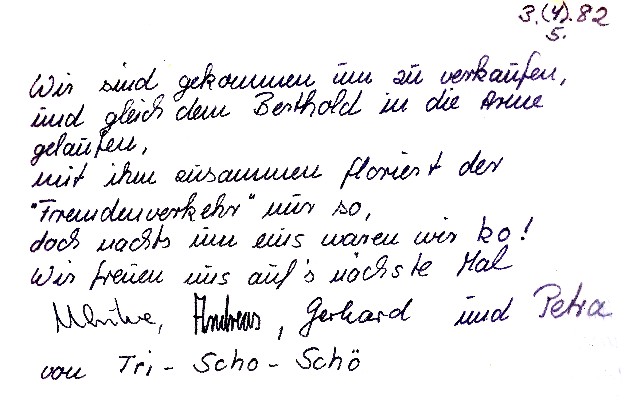 3.(4).82
5.
Wir sind gekommen um zu verkaufen,
und gleich dem Berthold in die Arme
gelaufen,
mit ihm zusammen floriert der
"Fremdenverkehr" nur so,
doch nachts um eins waren wir ko!
Wir freuen uns auf's nächste Mal
Ulrike, Andreas, Gerhard und Petra
von Tri-Scho-Schö